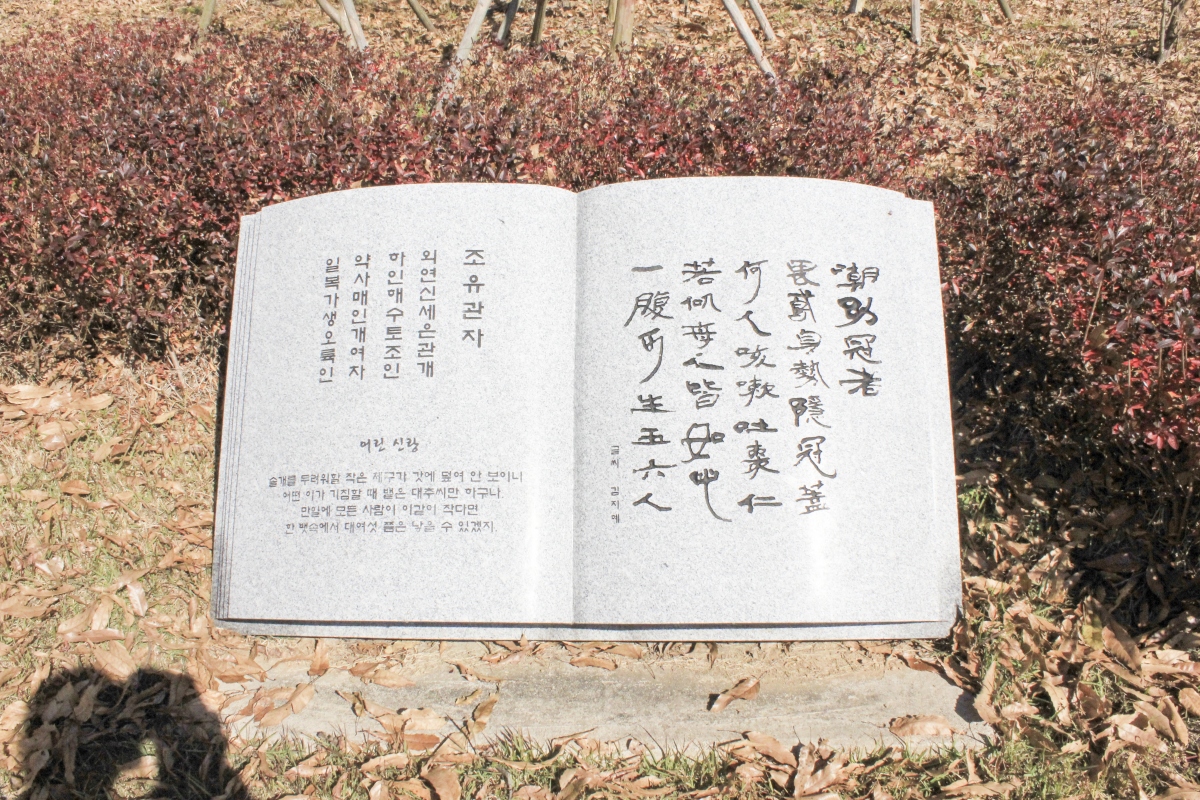 조유관자
외연신세은관개
하인해수토조인
약사매인개여자
일복가생오륙인
어린 신랑
솔개를 두려워할 작은 체구가 갓에 덮여 안 보이니
어떤 이가 기침할 때 뱉은 대추씨만 하구나.
만일에 모든 사람이 이같이 작다면
한 뱃속에서 대여섯 쯤은 낳을 수 있겠지.
嘲幼冠者
畏鳶身勢隱冠蓋
何人咳嗽吐棗仁
若似每人皆如此
一腹可生五六人
글씨 김지애